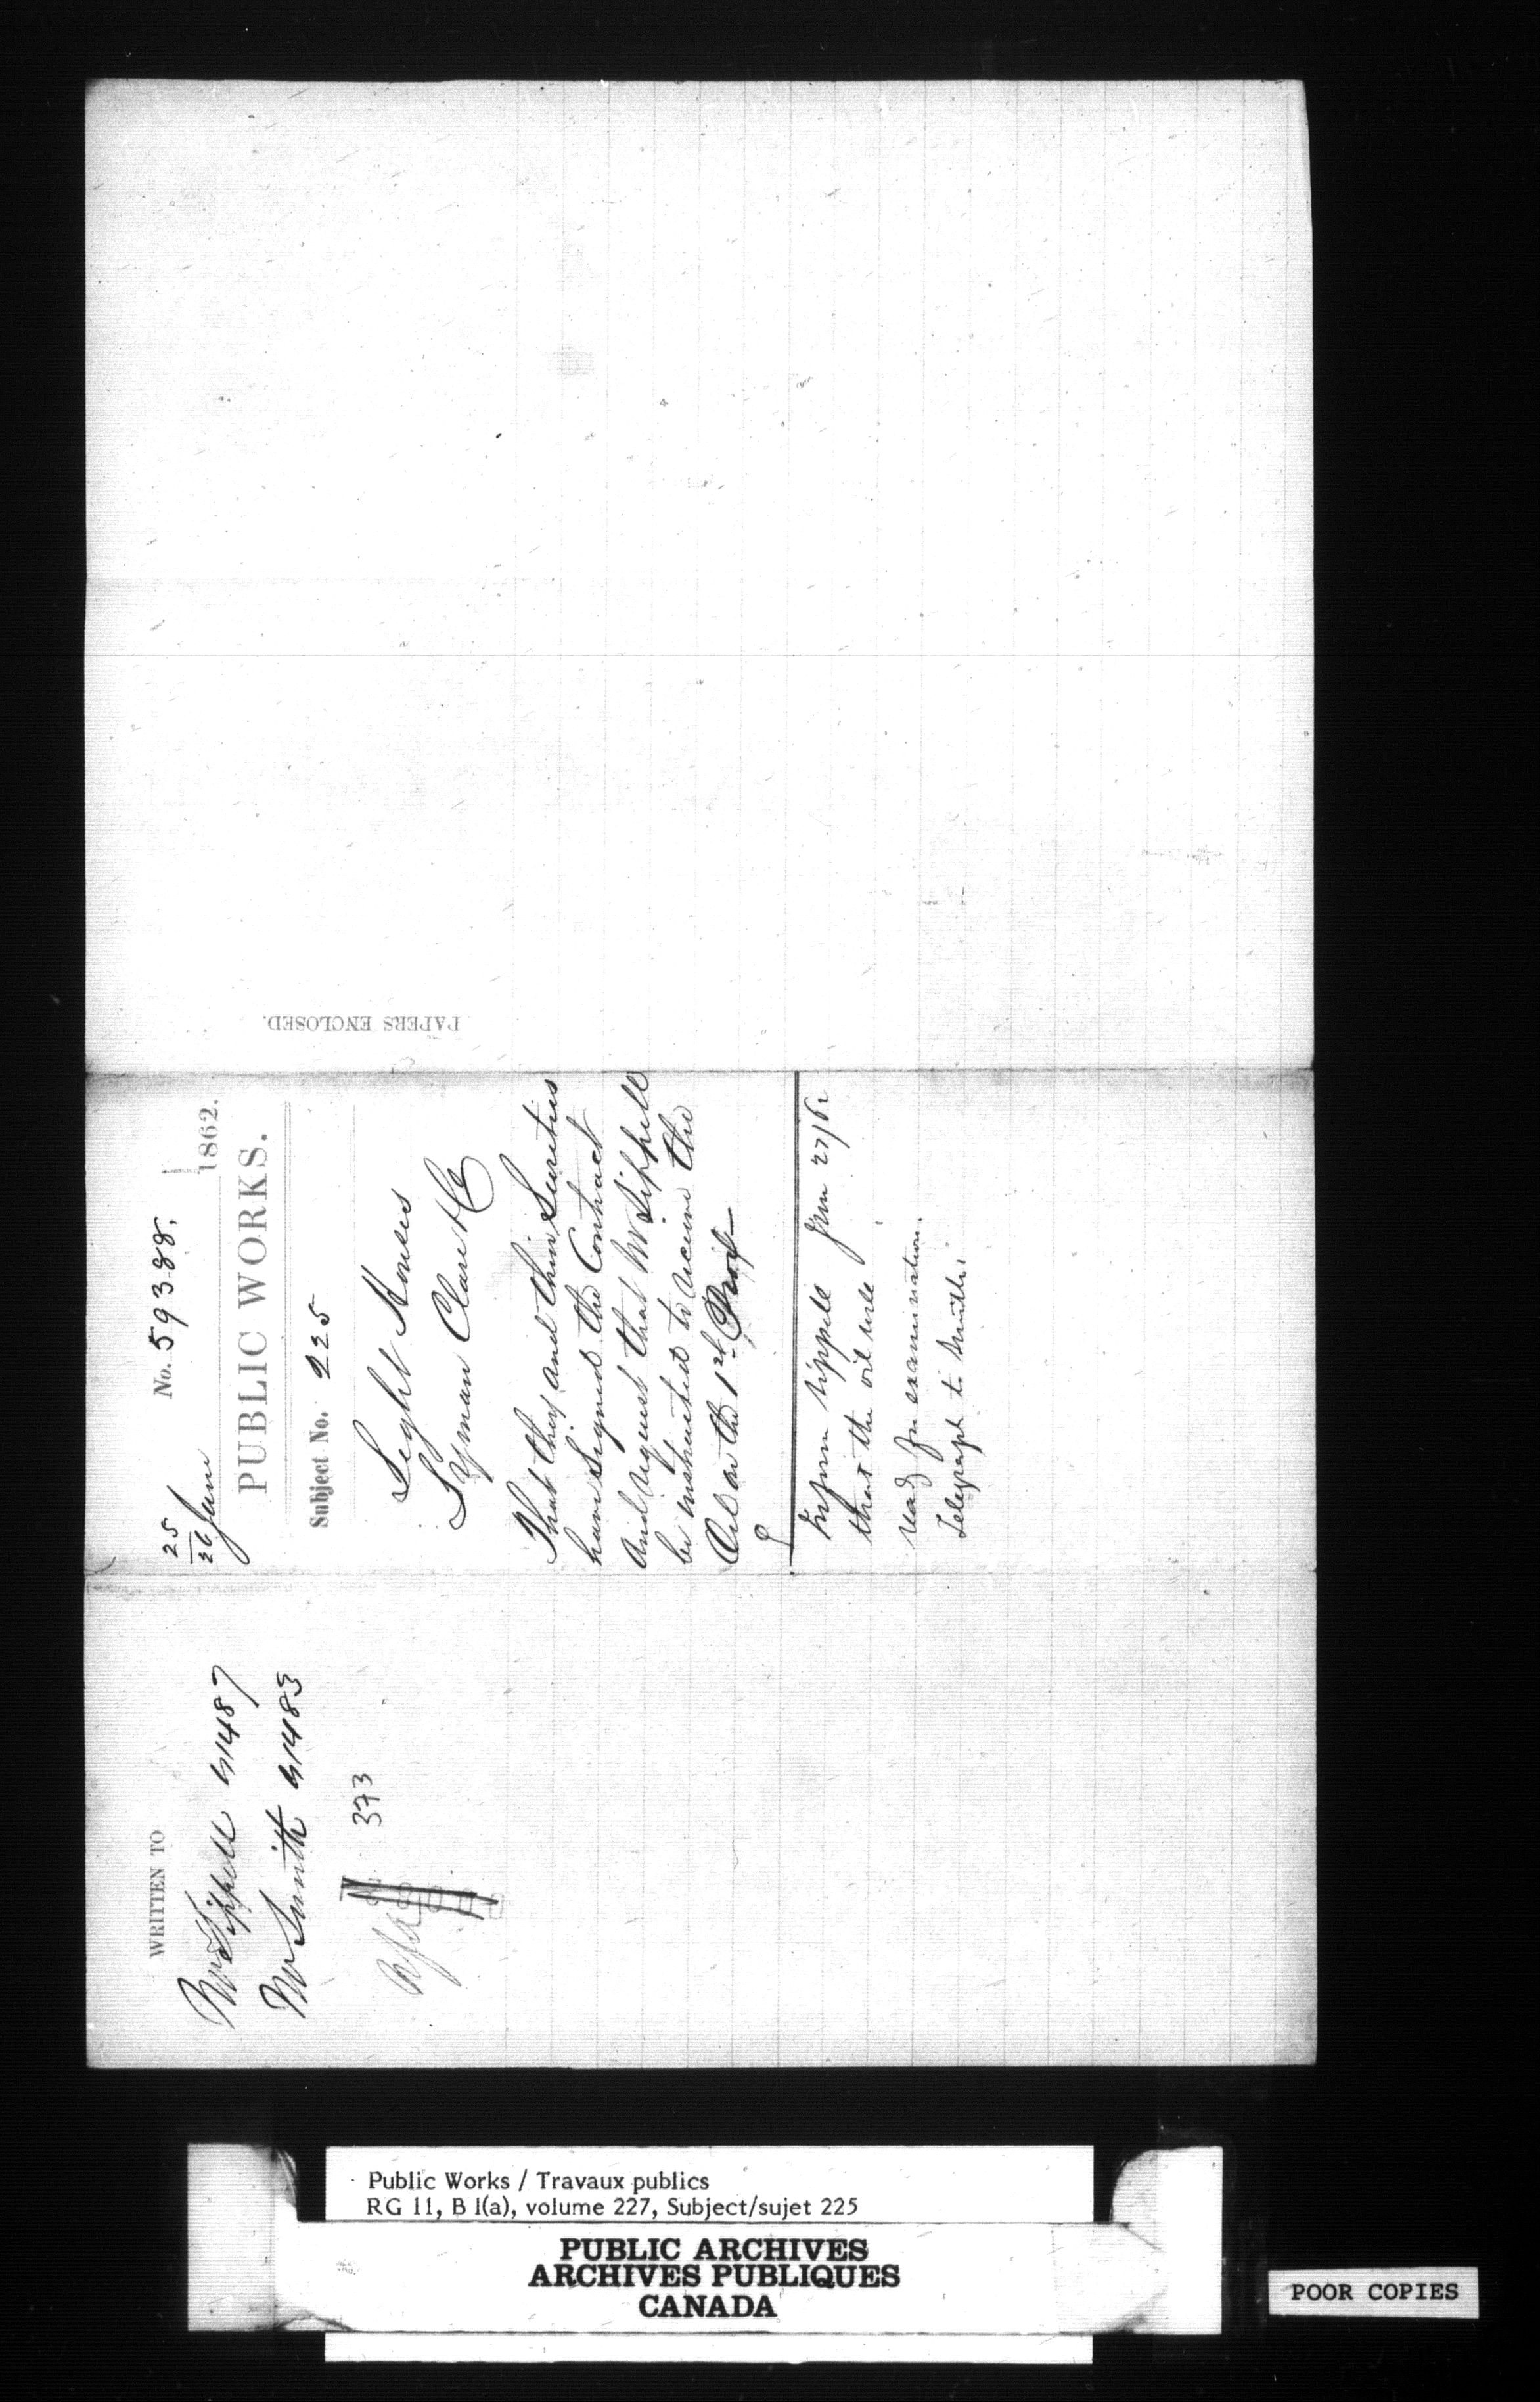 WRITTEN TO
Mr Sippell 41487
Mr Smith 41483
373
25
26 June
No. 59388.
1862.
PUBLIC WORKS.
Subject No. 225
Light Houses
Lyman Clare & Co
That they and their Sureties
have Signed the Contract
and request that Mr Sippell
be instructed to receive the
Oil on the 1st Prox
Inform Sippell June 27/62
that the oil will
read for examination.
Telegraph to Smith
PAPERS ENCLOSED.
Public Works / Travaux publics
RG 11, B 1(a), volume 227, Subject/sujet 225
PUBLIC ARCHIVES
ARCHIVES PUBLIQUES
CANADA
POOR COPIES